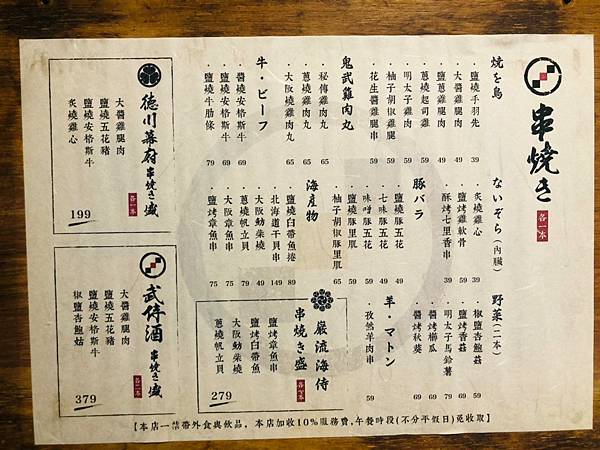 串焼き
各一本
焼を鳥
・鹽燒手羽先 39
・大醬雞腿肉 49
・鹽蔥雞腿肉 49
・蔥燒起司雞 59
・明太子雞肉 59
・柚子胡椒雞腿 59
・花生醬雞腿串 59
鬼武雞肉丸
・秘傳雞肉丸 65
・蔥燒雞肉丸 65
・大阪燒雞肉丸 65
牛・ビーフ
・醬燒安格斯牛 69
・鹽燒安格斯牛 69
・鹽燒牛肋條 79
ないぞら(内臟)
・炙燒雞心 39
・鹽烤雞軟骨 59
・酥烤七里香串 39
豚バラ
・鹽燒豚五花 49
・七味豚五花 49
・味噌豚五花 59
・鹽燒豚里肌 59
・柚子胡椒豚里肌 65
海產物
・鹽燒白帶魚捲 89
・北海道干貝串 149
・大阪魩柴燒 49
・蔥燒帆立貝 79
・大阪章魚串 75
・鹽烤章魚串 75
野菜(二本)
・椒鹽杏鮑菇 59
・鹽烤香菇 69
・明太子馬鈴薯 79
・醬烤櫛瓜 69
・醬烤秋葵 69
羊・マトン
・孜然羊肉串 59
巌流海侍
串焼き盛
鹽烤章魚串
鹽烤白帶魚
大阪魩柴燒
蔥燒帆立貝
279
徳川幕府
串焼き盛
各一本
大醬雞腿肉
鹽燒五花豬
鹽燒安格斯牛
炙燒雞心
199
武停酒
串焼き盛
大醬雞腿肉
鹽燒五花豬
鹽燒安格斯牛
椒鹽杏鮑菇
379
【本店一禁帶外食與飲品，本店加收10%服務費,午餐時段(不分平假日)免收取】